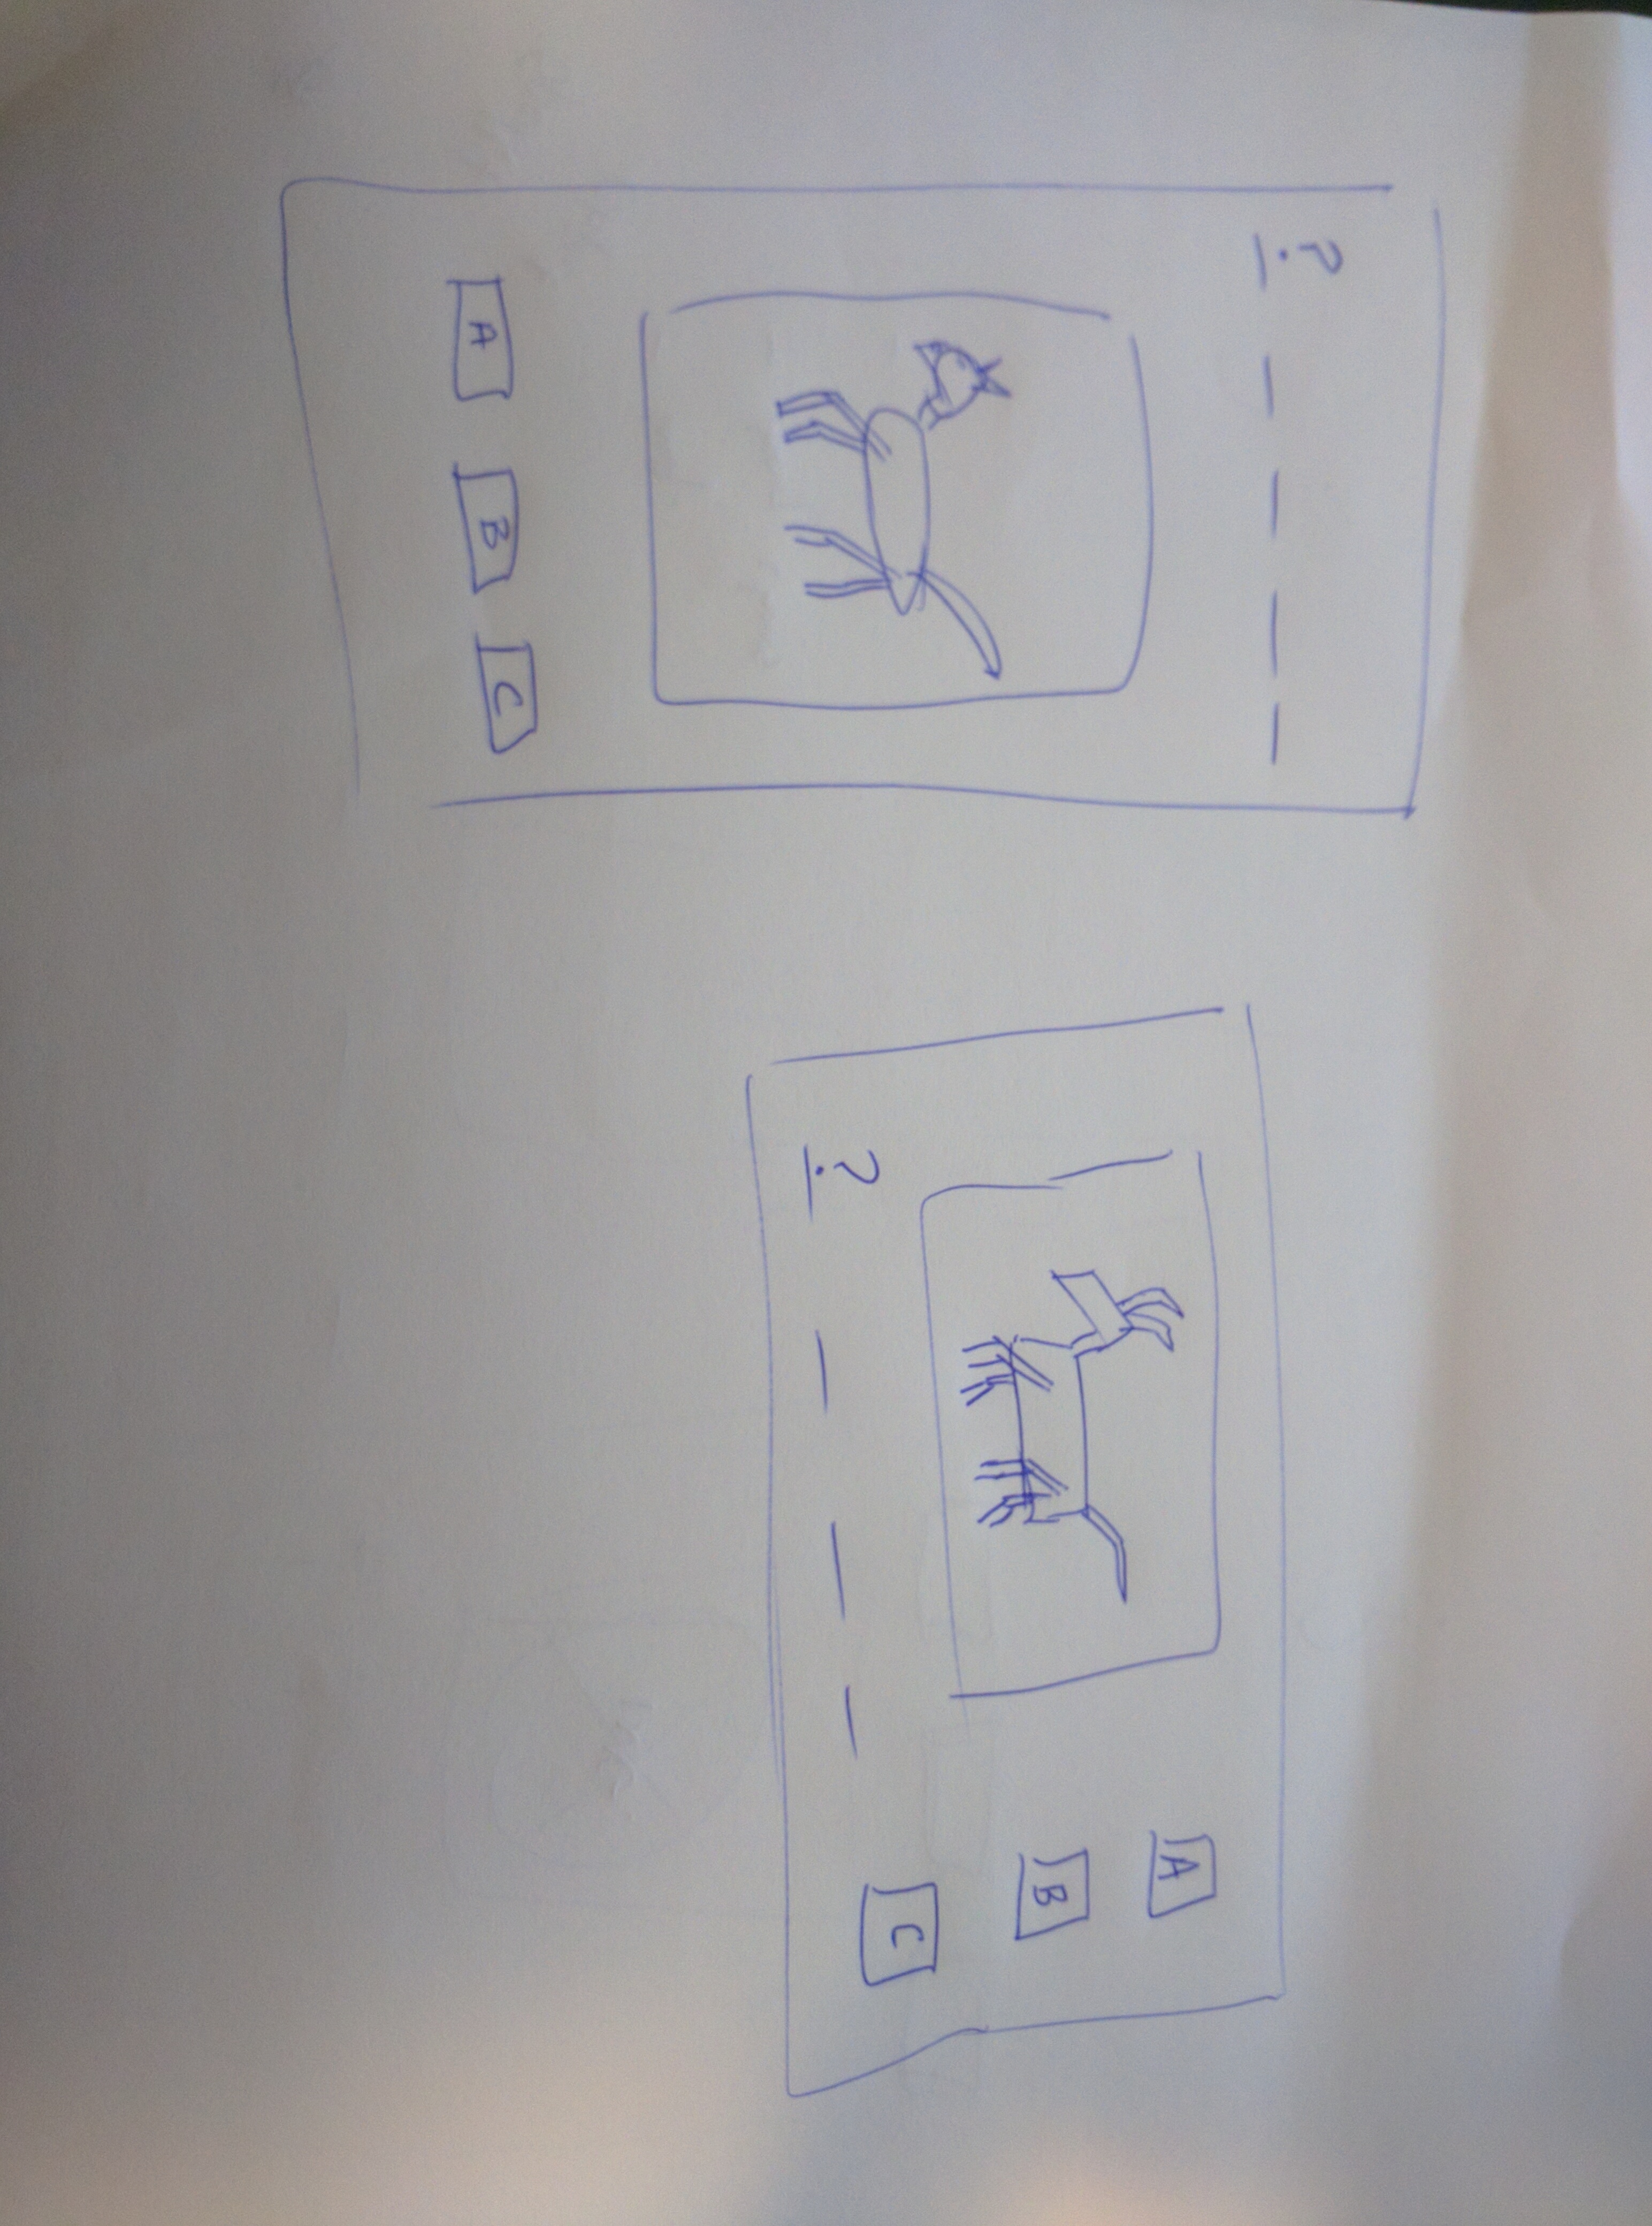 ? _ _ _ _
A B C
A
B
C
? _ _ _